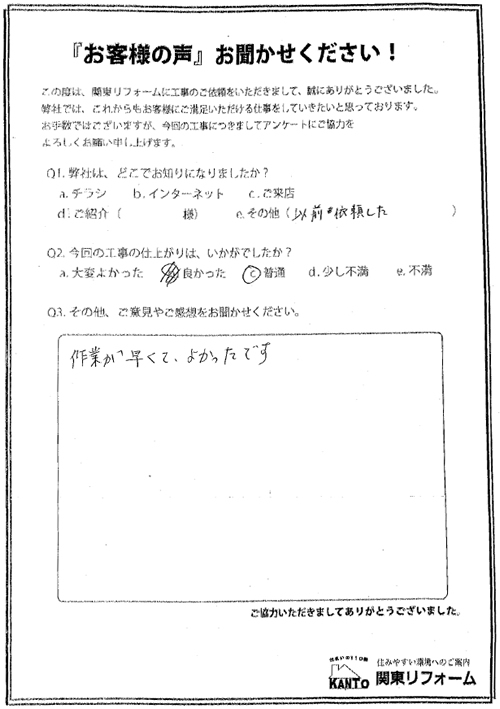 『お客様の声』お聞かせください！
この度は、関東リフォームに工事のご依頼をいただきまして、誠にありがとうございました。
弊社では、これからもお客様にご満足いただける仕事をしていきたいと思っております。
お手数ではございますが、今回の工事につきましてアンケートにご協力を
よろしくお願い申し上げます。
Q1. 弊社は、どこでお知りになりましたか？
a. チラシ b. インターネット c. ご来店
d. ご紹介（ 様） e. その他（以前も依頼した ）
Q2. 今回の工事の仕上がりは、いかがでしたか？
a. 大変よかった 良かった c 普通 d. 少し不満 e. 不満
Q3. その他、ご意見やご感想をお聞かせください。
作業が早くて、よかったです
ご協力いただきましてありがとうございました。
住まいの110番
KANTO
住みやすい環境へのご案内
関東リフォーム